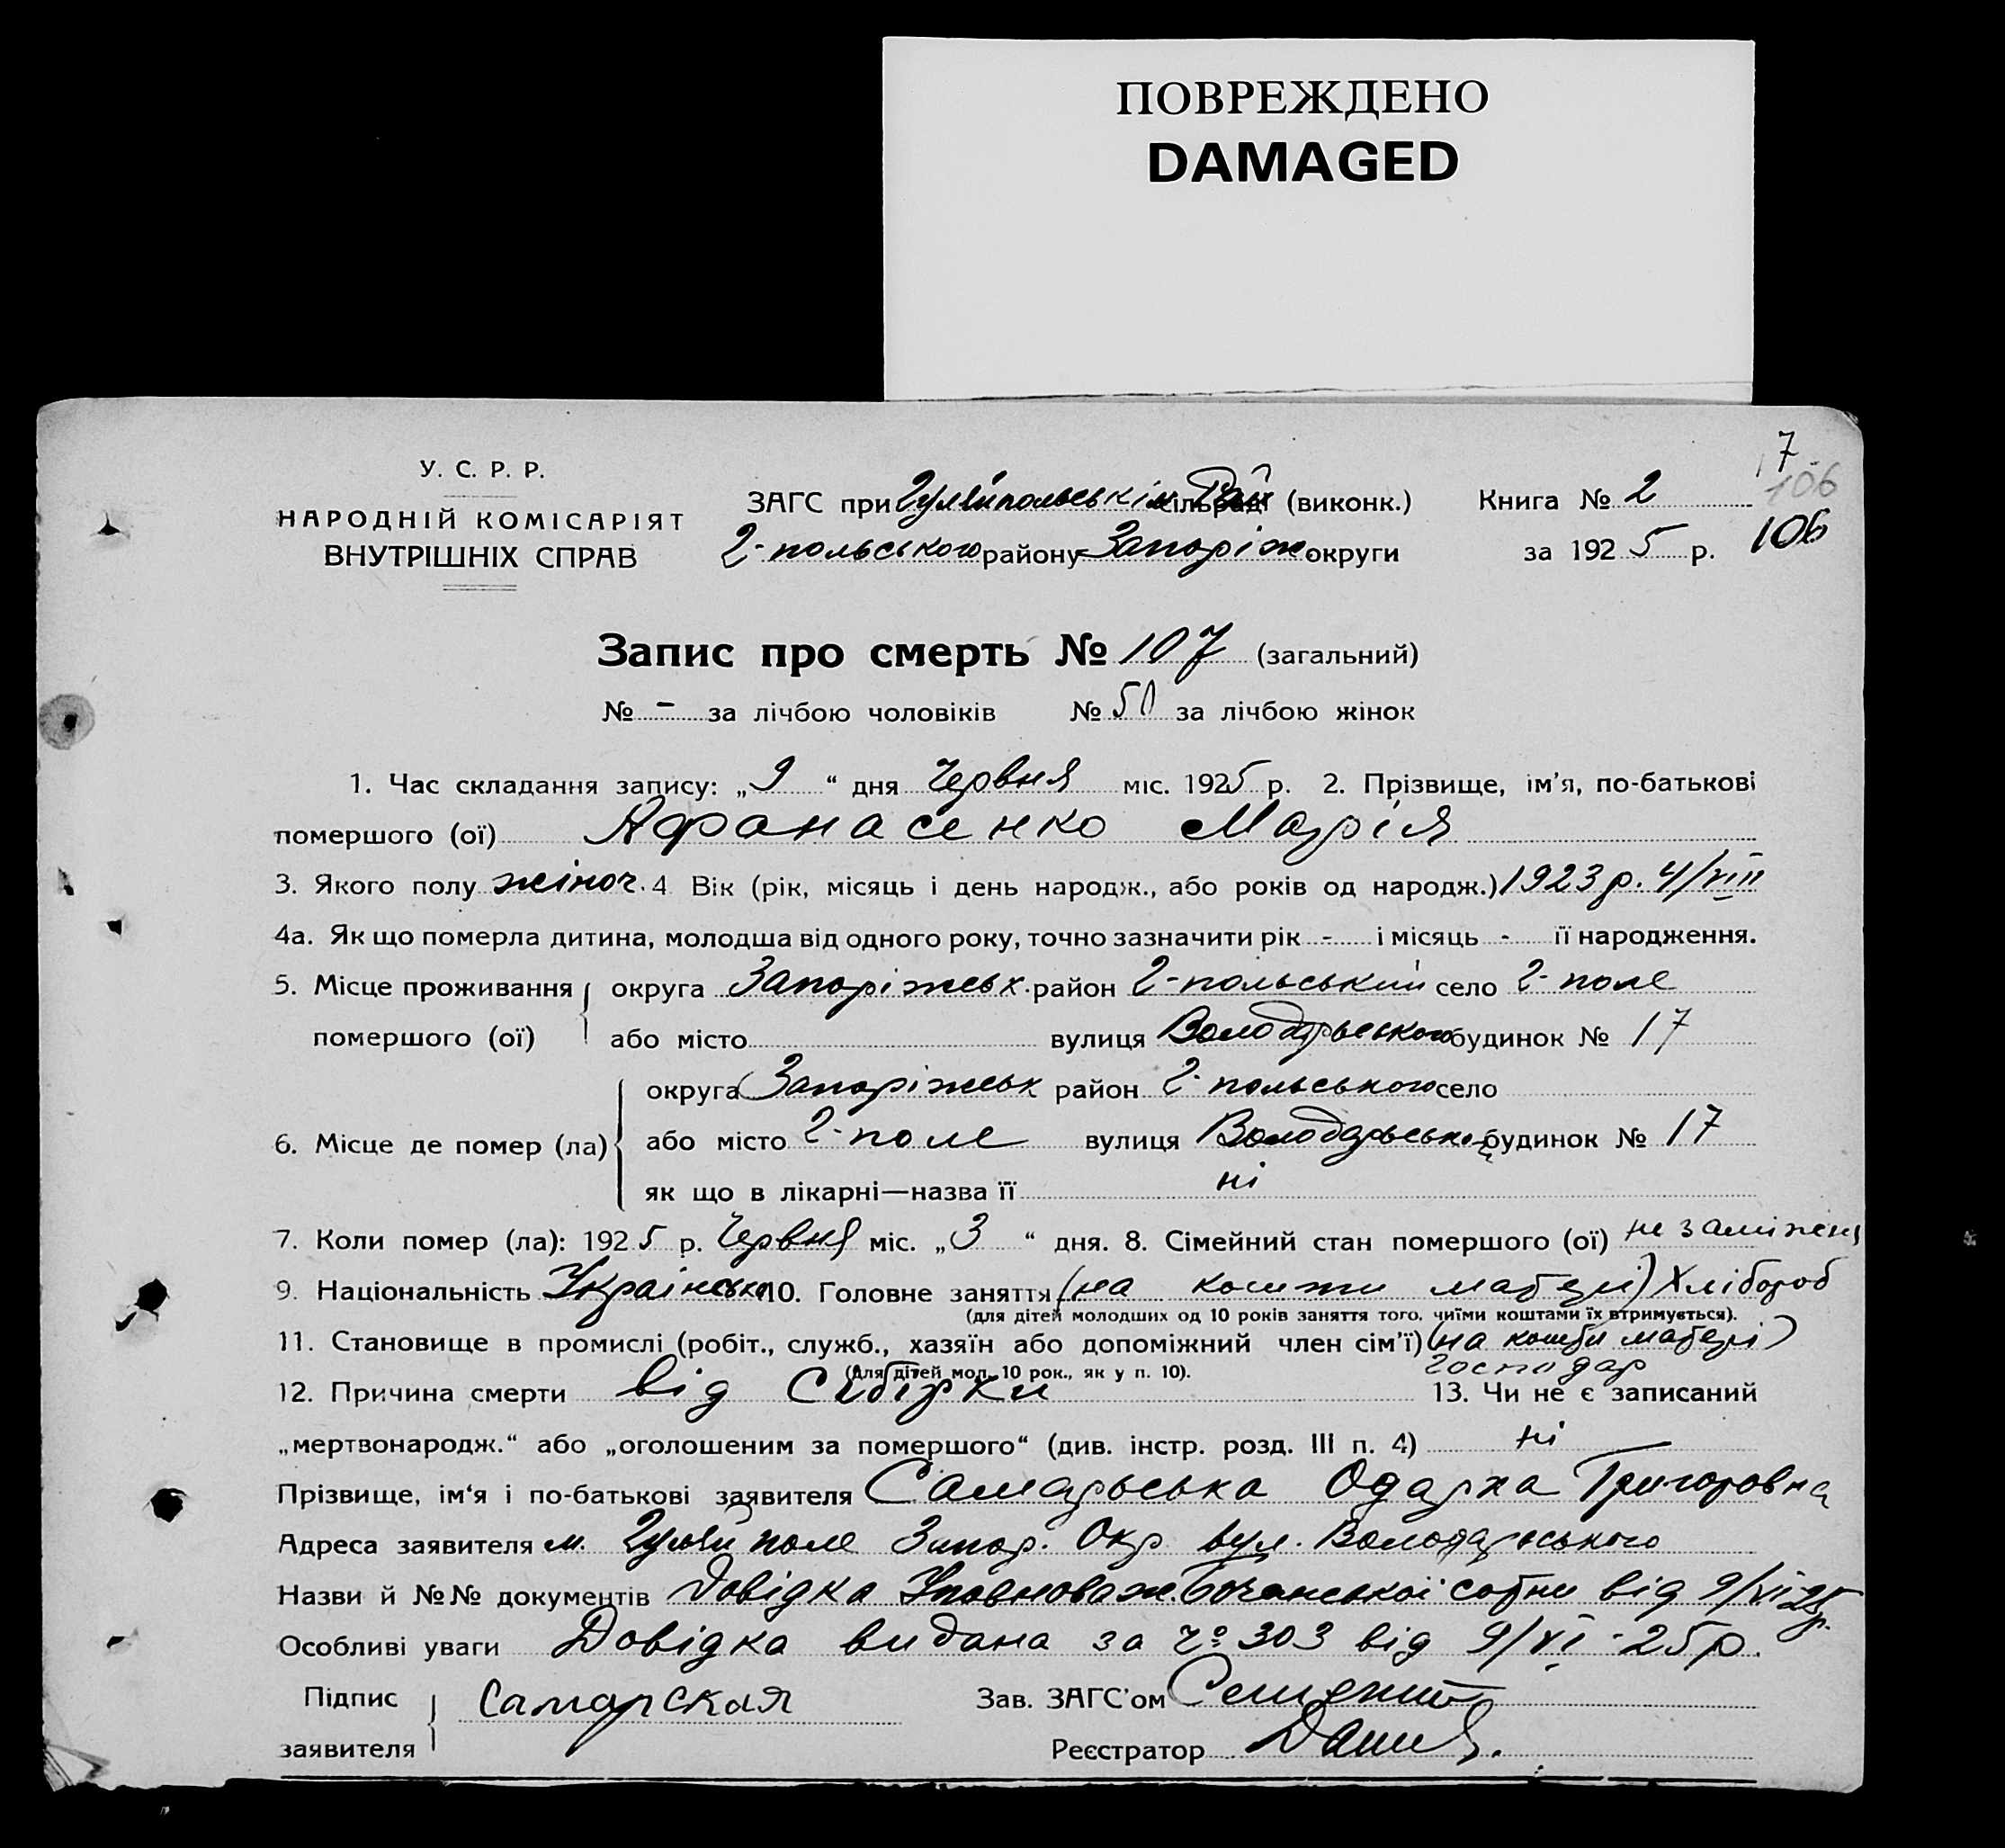 ПОВРЕЖДЕНО
DAMAGED
7
106
У. С. Р. Р.
НАРОДНІЙ КОМІСАРІЯТ
ВНУТРІШНІХ СПРАВ
ЗАГС при Гуляйпольськім сільраді Рай (виконк.) Книга № 2
2-польського району Запоріж округи за 1925 р. 106
Запис про смерть № 107 (загальний)
№ - за лічбою чоловіків № 50 за лічбою жінок
1. Час складання запису: „9“ дня Червня міс. 1925 р. 2. Прізвище, ім'я, по-батькові
помершого (ої) Афонасенко Марія
3. Якого полу жіноч. 4 Вік (рік, місяць і день народж., або років од народж.) 1923 р. 4/VIII
4а. Як що померла дитина, молодша від одного року, точно зазначити рік - і місяць - її народження.
5. Місце проживання округа Запоріжськ. район 2-польський село 2-поле
помершого (ої) або місто вулиця Володарського будинок № 17
округа Запоріжськ район 2-польського село
6. Місце де помер (ла) або місто 2-поле вулиця Володарсько будинок № 17
як що в лікарні—назва її ні
7. Коли помер (ла): 1925 р. Червня міс. „3“ дня. 8. Сімейний стан помершого (ої) не заміжня
9. Національність Українська 10. Головне заняття (на кошти матери) Хлібороб
(для дітей молодших од 10 років заняття того, чиїми коштами їх втримується).
11. Становище в промислі (робіт., служб., хазяїн або допоміжний член сім'ї) (на кошти матері)
(для дітей мол. 10 рок., як у п. 10). господар
12. Причина смерти від 13. Чи не є записаний
„мертвонародж.“ або „оголошеним за помершого“ (див. інстр. розд. III п. 4) ні
Прізвище, ім'я і по-батькові заявителя Самарьська Одарка Григоровна
Адреса заявителя м. Гуляй поле Запор. Окр вул. Володарського
Назви й №№ документів Довідка Уповноваж. сотни від 9/VI 25 р.
Особливі уваги Довідка видана за № 303 від 9/VI-25 р.
Підпис Самарская Зав. ЗАГС'ом
заявителя Реєстратор